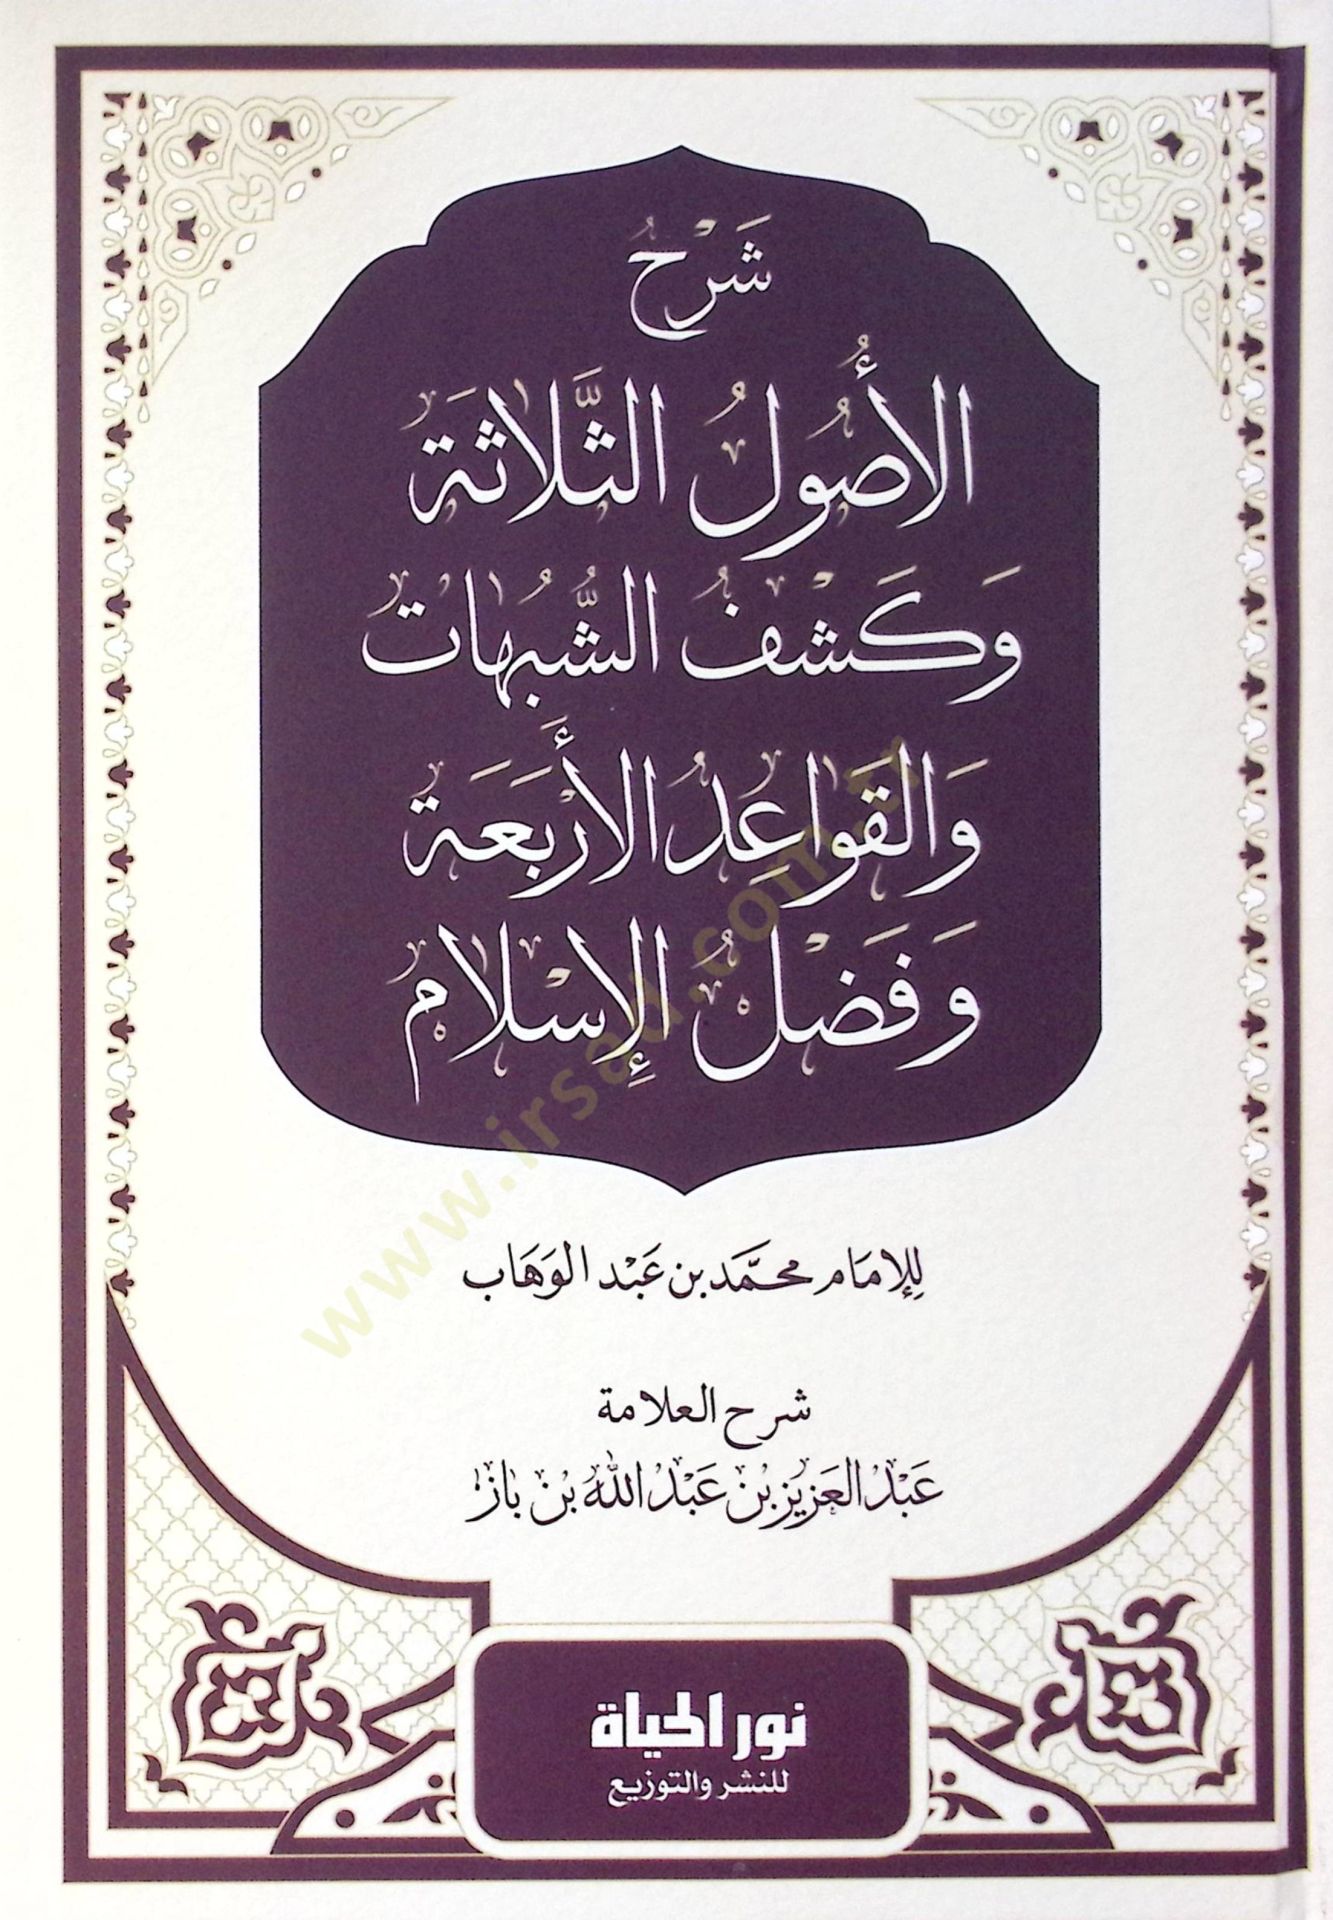 شَرْحُ
الأُصُولُ الثَّلَاثَةَ
وَكَشْفُ الشُّبُهَاتُ
وَالقَوَاعِدُ الأَرْبَعَةَ
وَفَضْلُ الإِسْلَامُ
لِلإمَام محمَّد بن عَبْد الوَهَاب
شرح العلامة
عَبْدُ العَزِيز بْنُ عَبْدُ اللهُ بْنُ بَازُ
نور الحياة
للنشر والتوزيع
www.irsad.com.tr